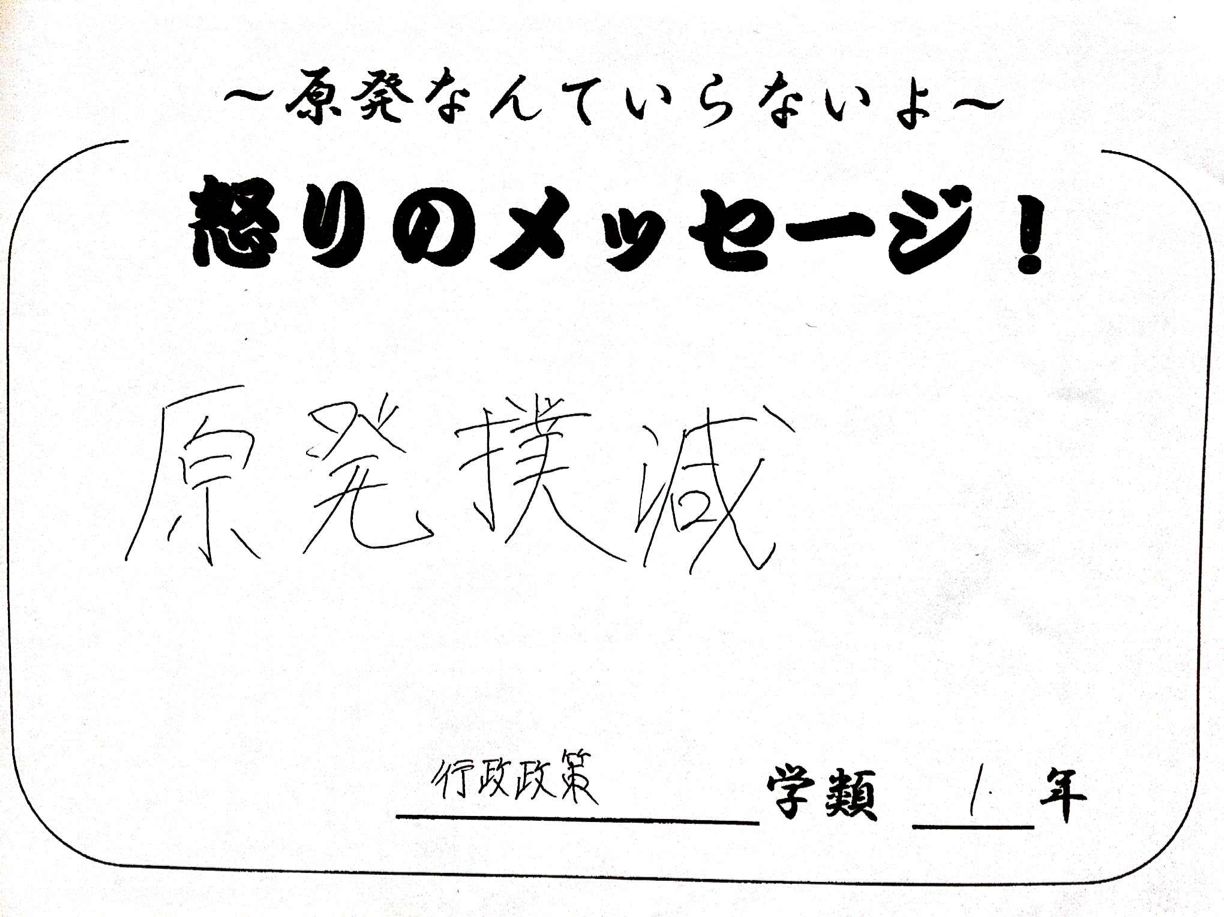 ～原発なんていらないよ～
怒りのメッセージ！
原発撲減
行政政策学類 1年